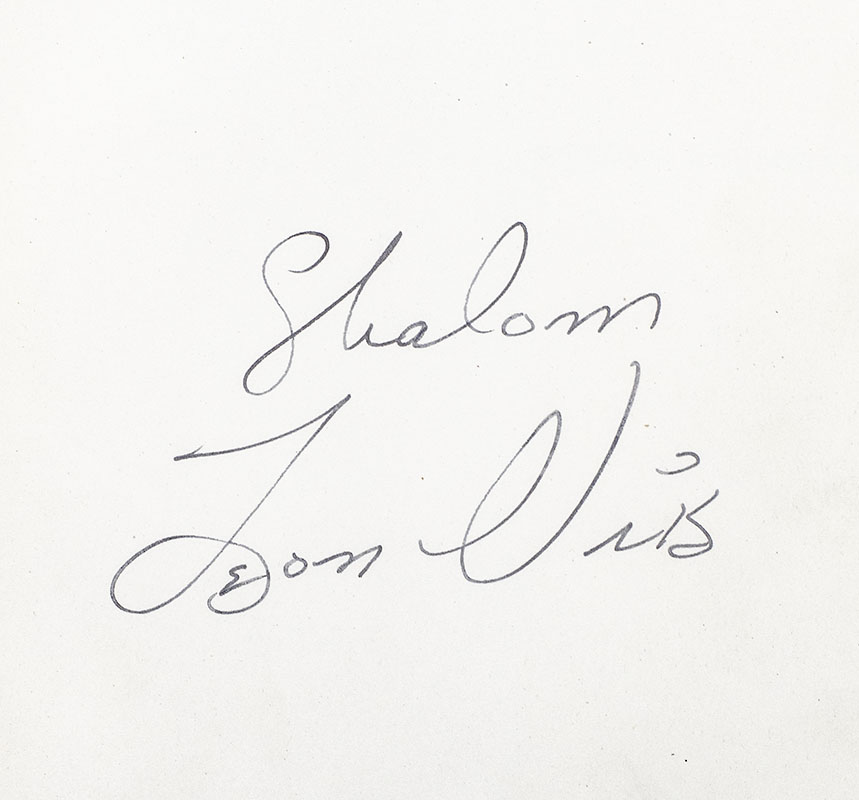 Shalom
Leon Uris